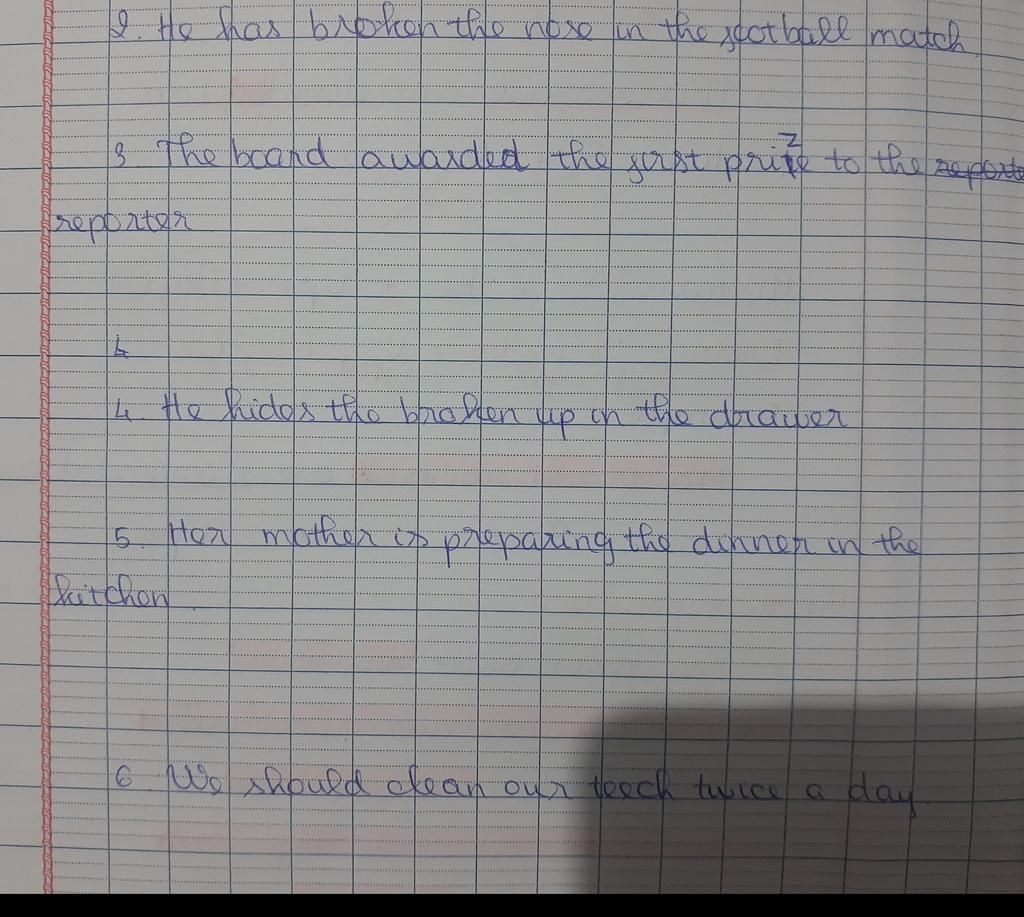 2. He has broken the nose in the football match
3 The board awarded the first prize to the reporte
reporter
4
4. He hides the broken up in the drawer
5. Her mother is preparing the dinner in the
kitchen
6 We should clean our teech twice a day.